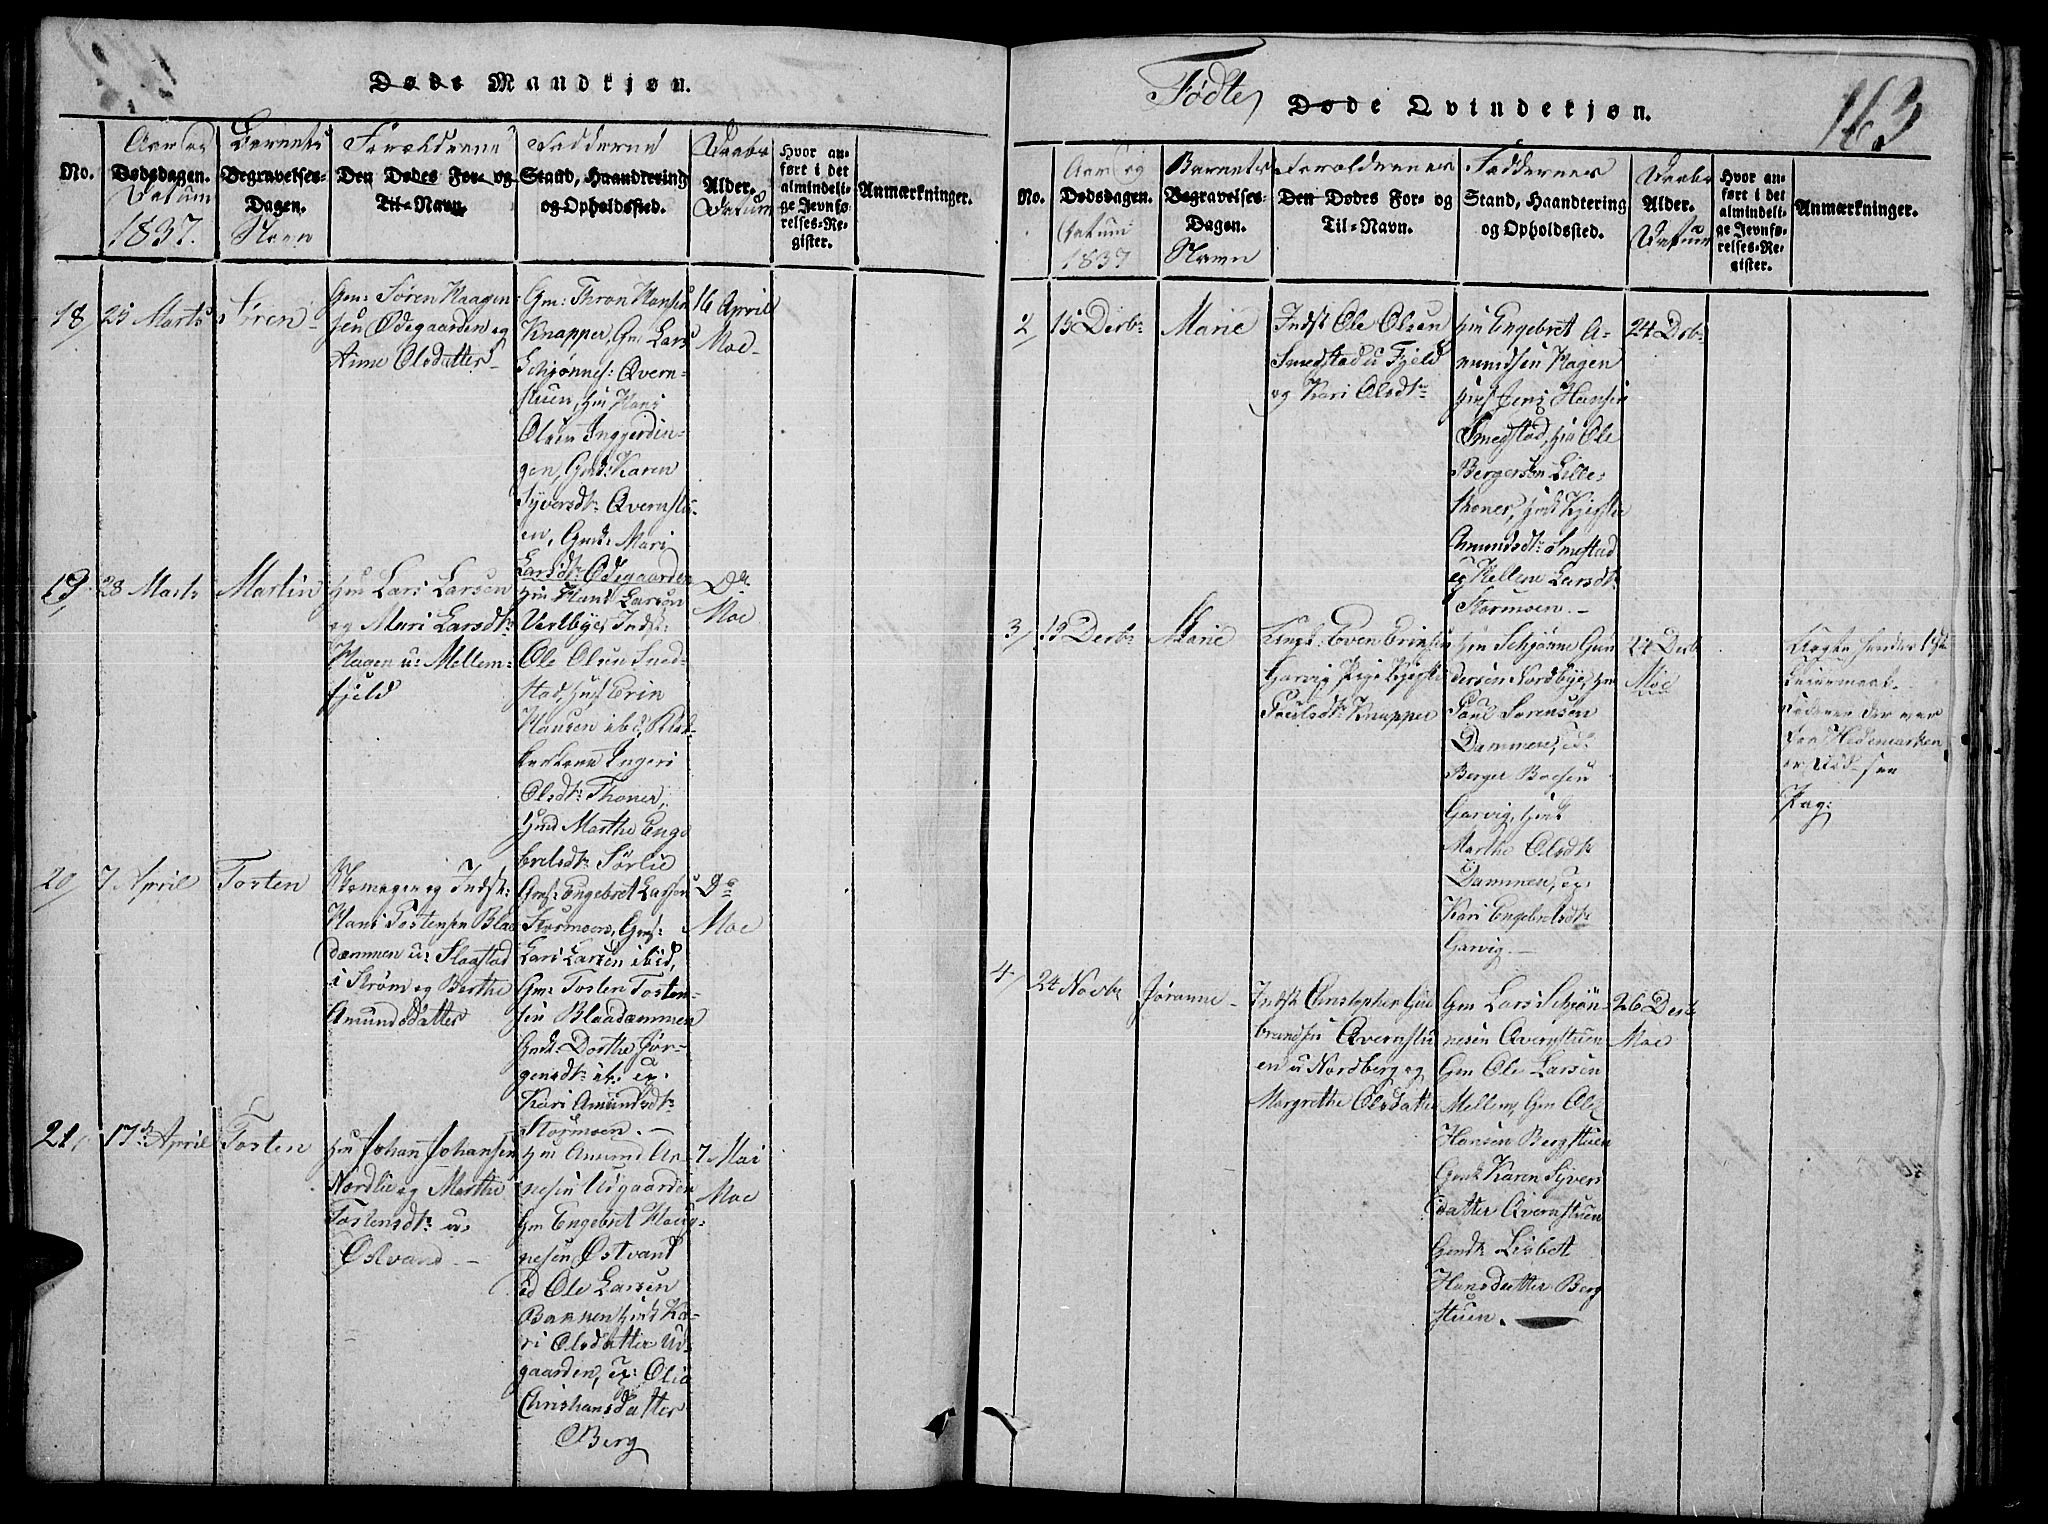 Døde Mandkjøn.
No.
Aar og
Dødsdagen.
Datum
1837.
Barnets
Begravelses-
Dagen.
Navn
Forældrene
Den Dødes For- og
Til-Navn.
Fadderne
Stand, Haandtering
og Opholdssted.
Daabs
Alder.
Datum
Hvor an-
ført i det
almindeli-
ge Jevnfø-
relses-Re-
gister.
Anmærkninger.
18
25 Marts
Søren
Gm: Søren Haagen-
sen Ødegaarden og
Anne Olsdatter
Gm: Thron Hansen
Knapper, Gm Lars
Schjønnes: Qvern-
stuen, Hm Hans
Olsen Inggjerdin-
gen, Gmd: Karen
Syversdtr: Qvernstu-
en, Gmdk: Mari
Larsdtr: Ødegaarden
16 April
Moe
19
28 Marts
Martin
Hm Lars Larsen
og Mari Larsdtr
Hagen u: Mellem-
fjeld
Hm Hans Larsen
Verlbye, Indst:
Ole Olsen Smed-
stad, Husf Erin
Hansen ibd,
Engeri
Olsdtr: Thoner,
Hmd Marthe Enge
bretsdtr Sørlie
Do
Moe
20
7 April
Tosten
og Indst:
Hans Tostensen Blaa
dammen u: Slaastad
i Strøm og Berthe
Amundsdatter
Gmf: Engebret Larsen
Stormoen, Gmf:
Lars Larsen ibid,
Gm: Tosten Tosten-
sen Blaadammen
Gmdk: Dorthe Jør-
gensdtr ib: og
Kari Amundsdtr
Stormoen. —
Do
Moe
21
17de April
Tosten
Hm Johan Johansen
Nordlie og Marthe
Tostensdtr u:
Østvand —
Hm Amund Ar
nesen Udgaarden
Gm Engebret Haag-
nesen Østvand
Ole Larsen
Bakken Hmdk Ka-
ri Olsdatter Ud-
gaarden, og: Olia
Christiansdatter
Berg
7 Mai
Moe
163
Fødte Døde Qvindekjøn.
No.
Aar og
Dødsdagen.
Datum
1837
Barnets
Begravelses-
Dagen.
Navn
Forældrenes
Den Dødes For- og
Til-Navn.
Faddernes
Stand, Haandtering
og Opholdssted.
Daabs
Alder.
Datum
Hvor an-
ført i det
almindeli-
ge Jevnfø-
relses-Re-
gister.
Anmærkninger.
2
15 Decbr
Marie
Indst Ole Olsen
Smedstad u Fjeld
og Kari Olsdtr
Hm Engebret A-
mundsen Hagen
Husf Jens Hansen
Smedstad, Hm Ole
Bergersen Lille-
thoner, Hmdk Kjersti
Amundsdtr: Smestad
og Hellene Larsdtr
Stormoen. —
24 Decbr
3
19 Decbr
Marie
Ungk: Even Erinsen
Garvig Pige Kjersti
Poulsdtr: Knapper
Hm Schjønne Gun
dersen Nordbye, Hm
Poul Sørensen
Dammen, U:
Berger Boesen
Garvig, Hmk
Marthe Olsdtr
Dammen, og:
Kari Engebretsdtr
Garvig. —
24 Decbr
Moe
Begges hendes 1ste
Leiermaal.
Faderen der var
fra Hedemarken
er død see
Pag:
4
24 Novbr
Jøranne
Indst Christopher Gul
brandsen Qvernstu
en u Nordberg og
Margrethe Olsdatter
Gm Lars Schjøn-
nesen Qvernstuen
Gm Ole Larsen
Mellem, Gm Ole
Hansen Bergstuen
Gmk Karen Syvers
datter Qvernstuen
Gmdk Lisbet
Hansdatter Berg
stuen. —
26 Decbr
Moe